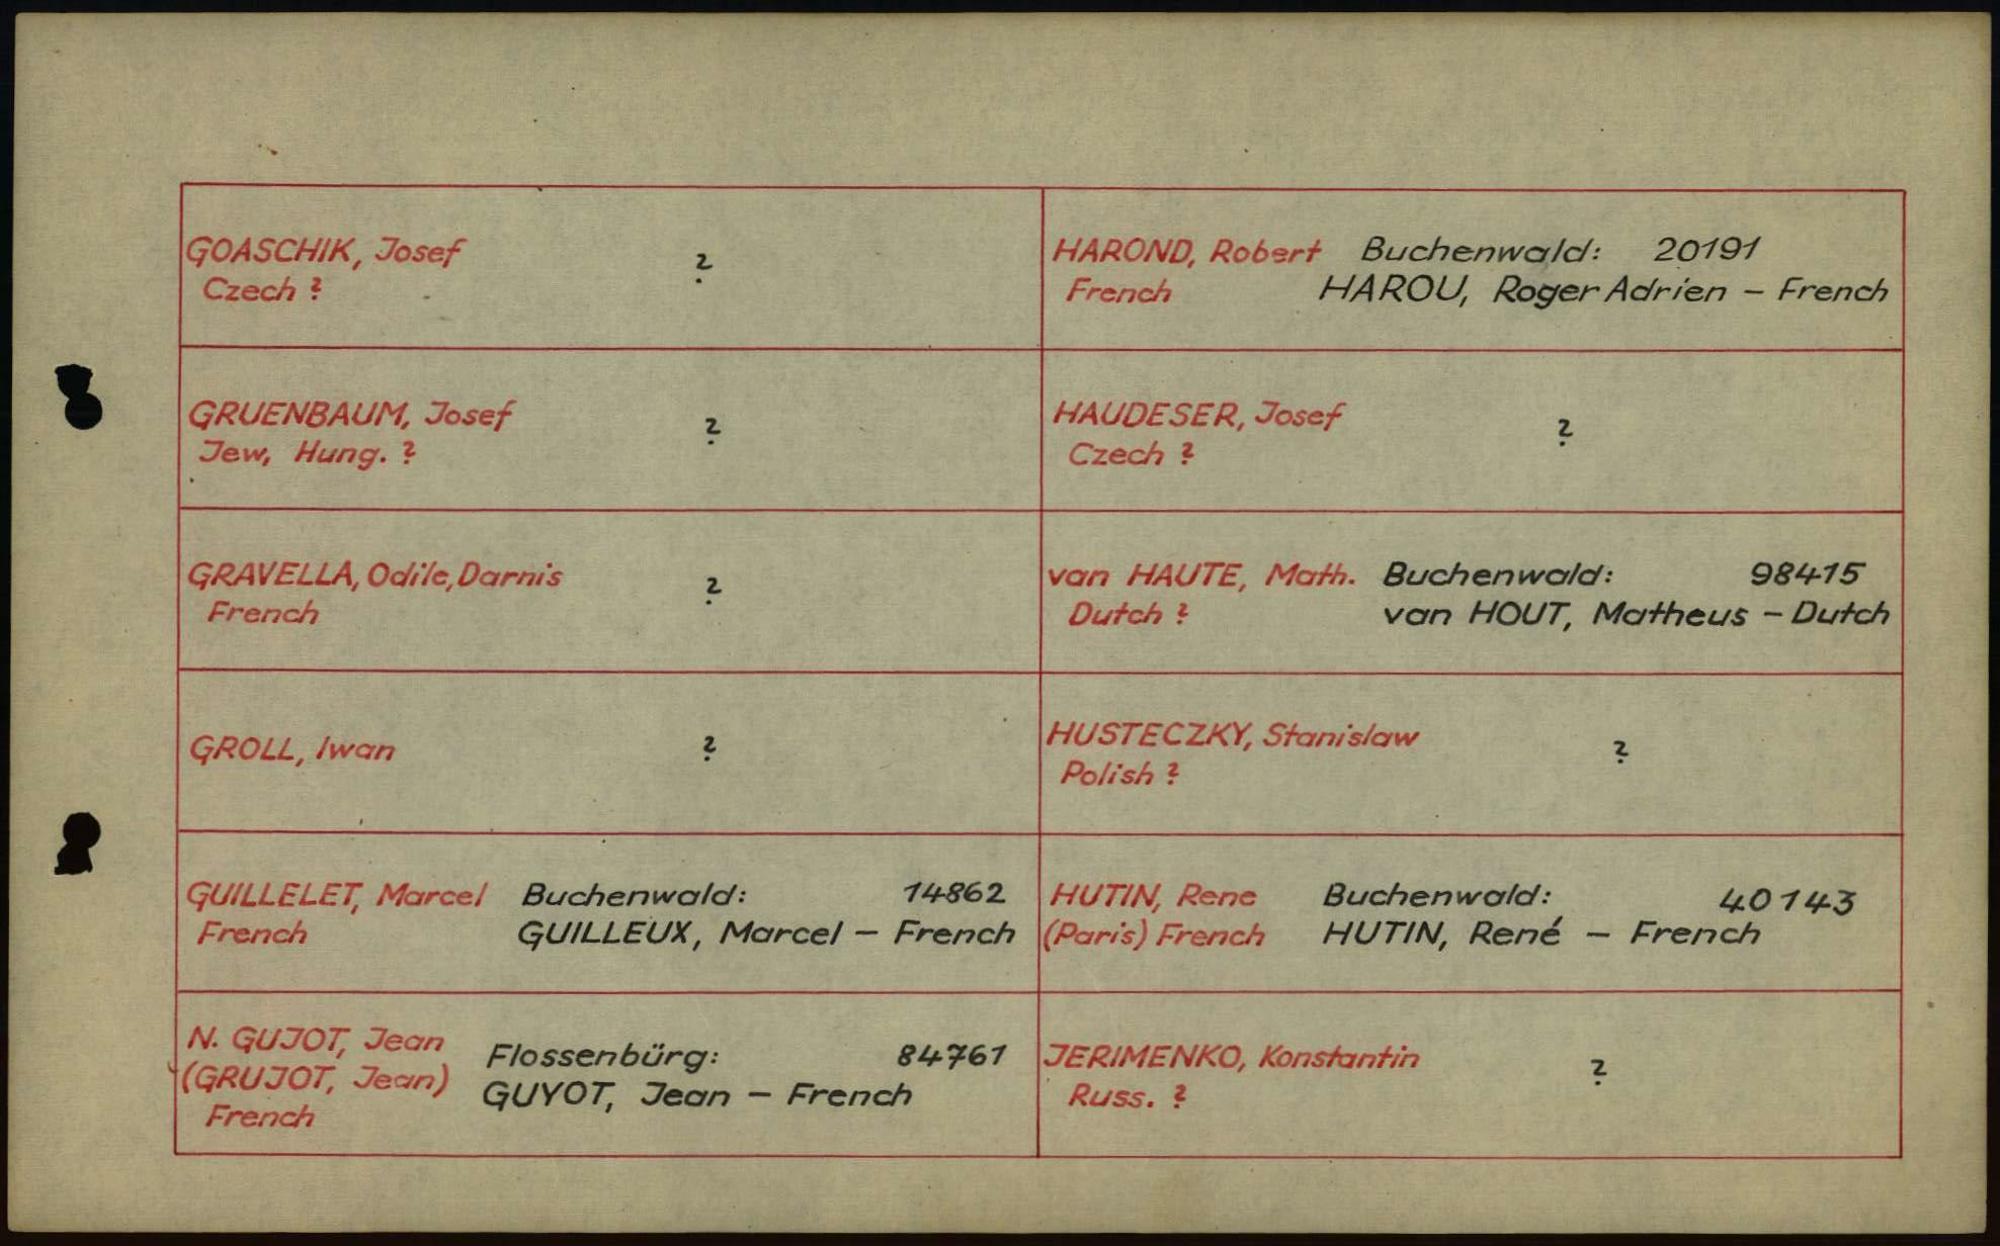 GOASCHIK, Josef ?
Czech ?
GRUENBAUM, Josef ?
Jew, Hung. ?
GRAVELLA, Odile, Darnis ?
French
GROLL, Iwan ?
GUILLELET, Marcel Buchenwald: 14862
French GUILLEUX, Marcel – French
N. GUJOT, Jean
(GRUJOT, Jean) Flossenbürg: 84761
French GUYOT, Jean – French
HAROND, Robert Buchenwald: 20191
French HAROU, Roger Adrien – French
HAUDESER, Josef ?
Czech ?
van HAUTE, Math. Buchenwald: 98415
Dutch ? van HOUT, Matheus – Dutch
HUSTECZKY, Stanislaw ?
Polish ?
HUTIN, Rene Buchenwald: 40143
(Paris) French HUTIN, René – French
JERIMENKO, Konstantin ?
Russ. ?